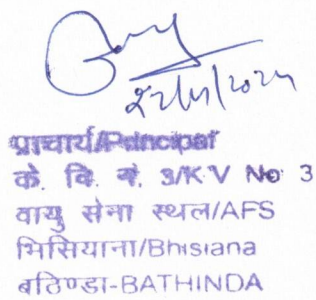 प्राचार्य/Principal
के. वि. नं. 3/K V No 3
वायु सेना स्थल/AFS
भिसियाना/Bhisiana
बठिण्डा-BATHINDA